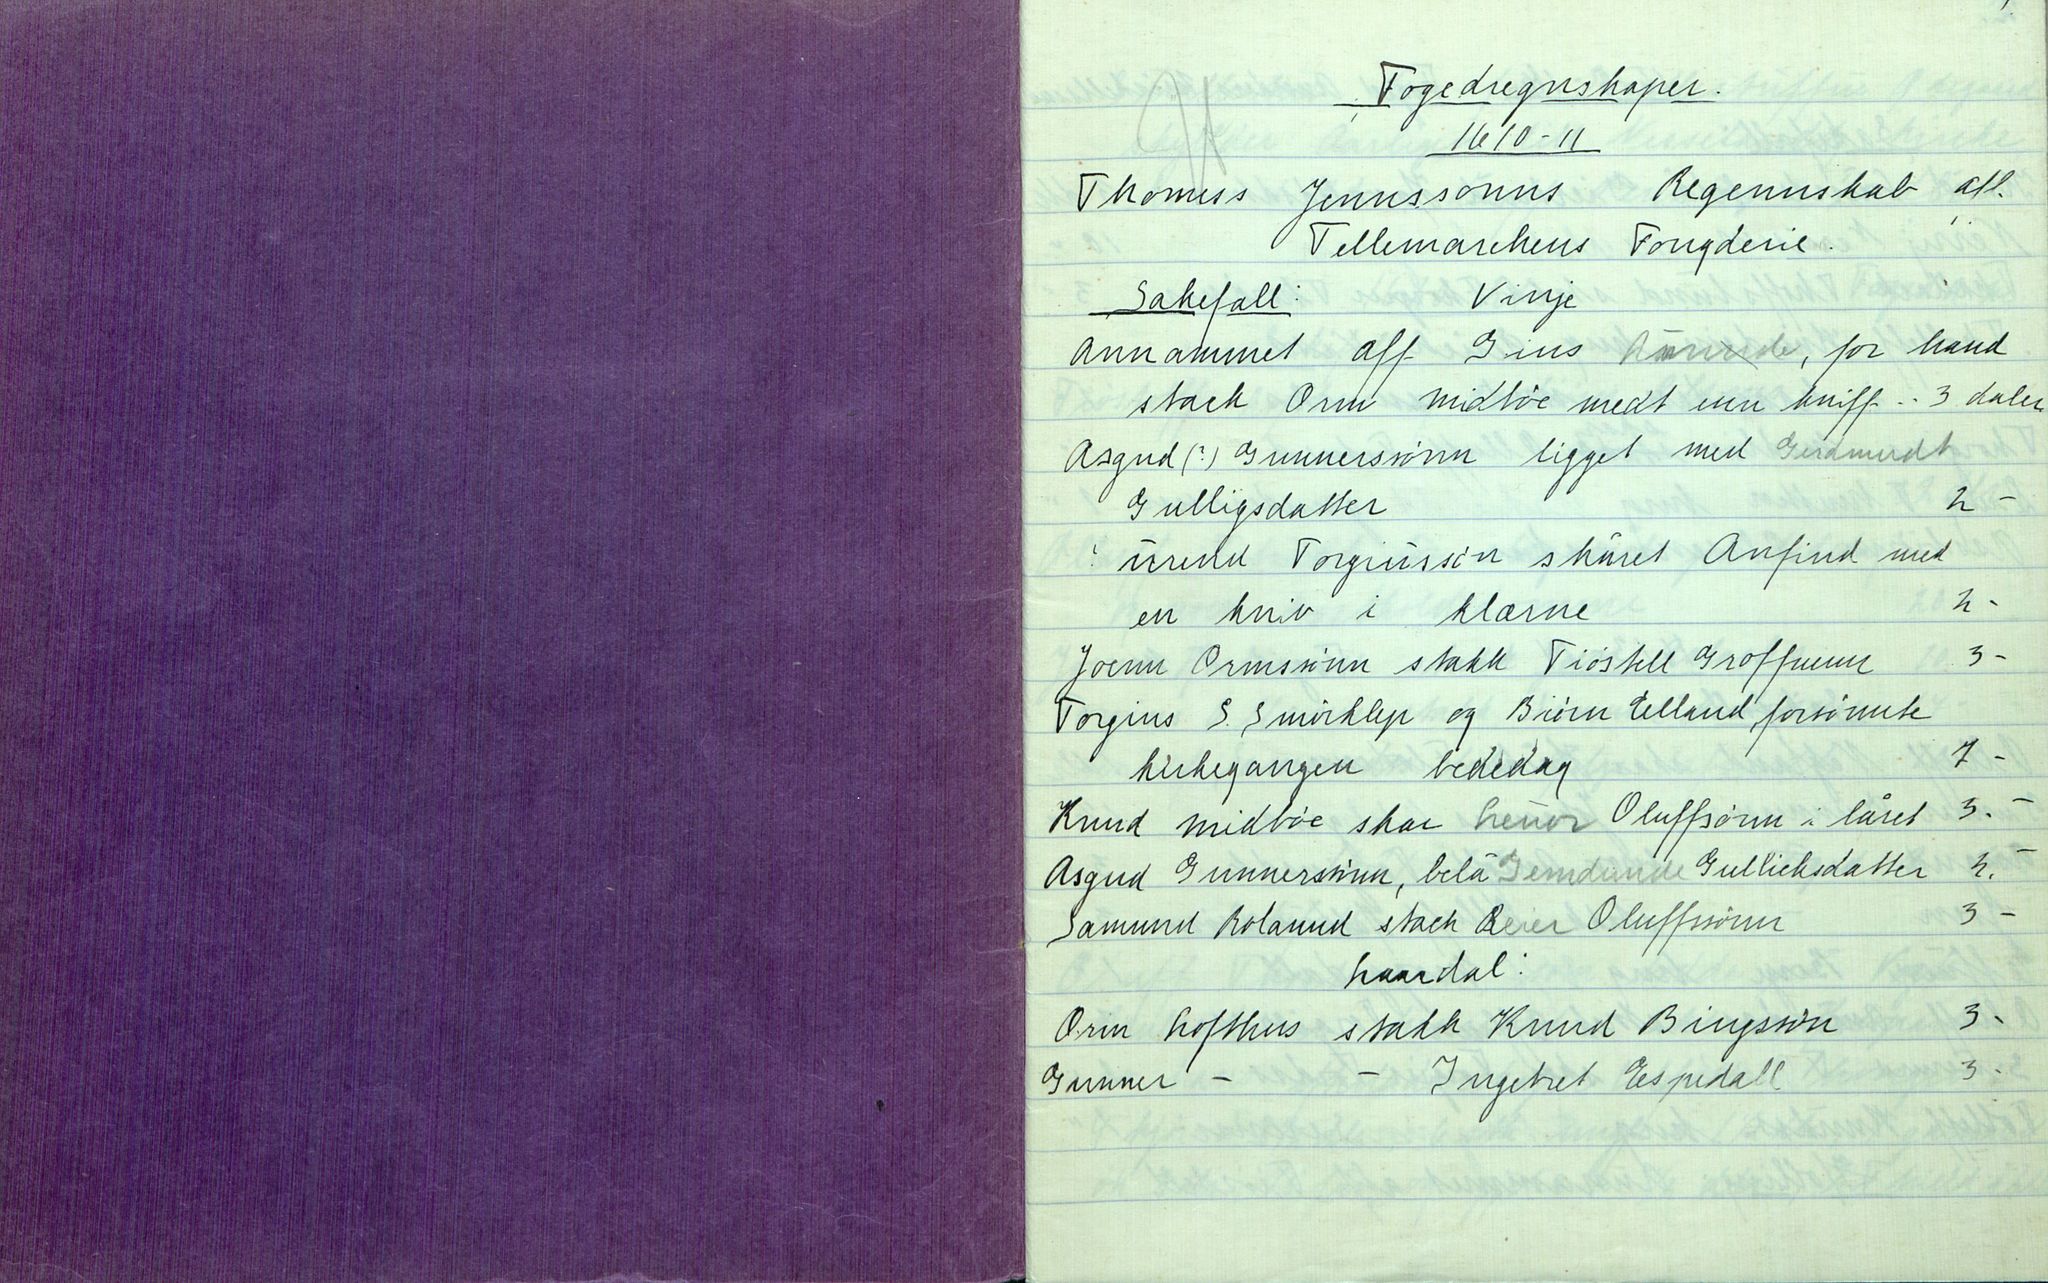 Fogedregnskaper.
1610-11
Thomess Jennssonns Regennskab aff.
Tellemarckens Fougderie.
Sakefall: Vinje
Annammet aff Gius, for hand
stack Orm midböe medt enn kniff .. 3 daler
Asgud (?) Gunnerssönn ligget med
Gulligsdatter 2 -
Torgiüssön skåret Anfind med
en kniv i klærne 2 -
Joenn Ormssönn stakk Tiöstell Groffuenn 3 -
Torgius S. Smörklep og Biörn Edland forsömte
kirkegangen bededag 7 -
Knud midböe skar Oluffsönn i låret 3. -
Asgud Gunnerssönn, belå Gullicksdatter 2. -
Samund Rolannd stack Reier Oluffssönn 3 -
haardal:
Orm Lofthus stakk Knud Bingssön 3 -
Gunner - - Ingebret Espedall 3 -